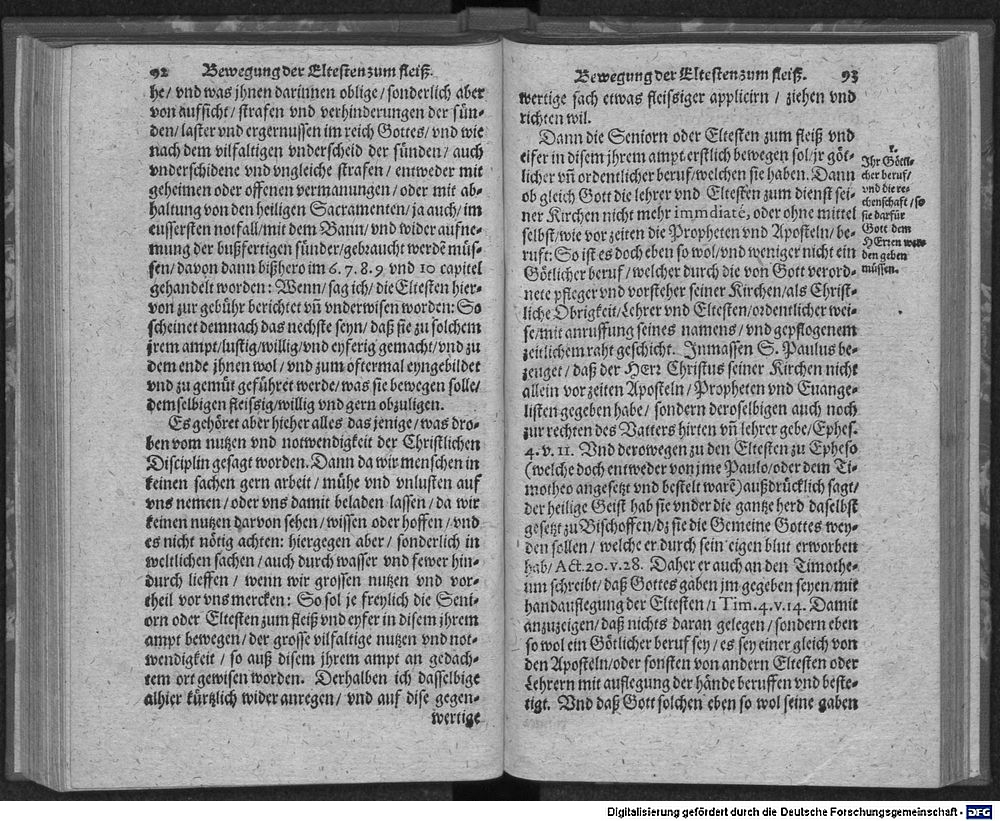 92 Bewegung der Eltesten zum fleiß.
he/ vnd was jhnen darinnen oblige/ sonderlich aber
von aufsicht/ strafen vnd verhinderungen der sün-
den/ laster vnd ergernussen im reich Gottes/ vnd wie
nach dem vilfaltigen vnderscheid der sünden/ auch
vnderschidene vnd vngleiche strafen/ entweder mit
geheimen oder offenen vermanungen/ oder mit ab-
haltung von den heiligen Sacramenten/ ja auch/ im
eussersten notfall/ mit dem Bann/ vnd wider aufne-
mung der bußfertigen sünder/ gebraucht werdē müs-
sen/ davon dann bißhero im 6. 7. 8. 9 vnd 10 capitel
gehandelt worden: Wenn/ sag ich/ die Eltesten hier-
von zur gebühr berichtet vñ vnderwisen worden: So
scheinet demnach das nechste seyn/ daß sie zu solchem
jrem ampt/ lustig/ willig/ vnd eyferig gemacht/ vnd zu
dem ende jhnen wol/ vnd zum öftermal eyngebildet
vnd zu gemüt geführet werde/ was sie bewegen solle/
demselbigen fleissig/ willig vnd gern obzuligen.
Es gehöret aber hieher alles das jenige/ was dro-
ben vom nutzen vnd notwendigkeit der Christlichen
Disciplin gesagt worden. Dann da wir menschen in
keinen sachen gern arbeit/ mühe vnd vnlusten auf
vns nemen/ oder vns damit beladen lassen/ da wir
keinen nutzen darvon sehen/ wissen oder hoffen/ vnd
es nicht nötig achten: hiergegen aber/ sonderlich in
weltlichen sachen/ auch durch wasser vnd fewer hin-
durch lieffen/ wenn wir grossen nutzen vnd vor-
theil vor vns mercken: So sol je freylich die Seni-
orn oder Eltesten zum fleiß vnd eyfer in disem jhrem
ampt bewegen/ der grosse vilfaltige nutzen vnd not-
wendigkeit/ so auß disem jhrem ampt an gedach-
tem ort gewisen worden. Derhalben ich dasselbige
alhier kürtzlich wider anregen/ vnd auf dise gegen-
wertige
Bewegung der Eltesten zum fleiß. 93
wertige sach etwas fleissiger applicirn/ ziehen vnd
richten wil.
Dann die Seniorn oder Eltesten zum fleiß vnd
eifer in disem jhrem ampt erstlich bewegen sol/ jr göt-
licher vñ ordentlicher beruf/ welchen sie haben. Dann
ob gleich Gott die lehrer vnd Eltesten zum dienst sei-
ner Kirchen nicht mehr immdiatè, oder ohne mittel
selbst/ wie vor zeiten die Propheten vnd Aposteln/ be-
ruft: So ist es doch eben so wol/ vnd weniger nicht ein
Götlicher beruf/ welcher durch die von Gott verord-
nete pfleger vnd vorsteher seiner Kirchen/ als Christ-
liche Obrigkeit/ Lehrer vnd Eltesten/ ordentlicher wei-
se/ mit anruffung seines namens/ vnd gepflogenem
zeitlichem raht geschicht. Inmassen S. Paulus be-
zeuget/ daß der Herr Christus seiner Kirchen nicht
allein vor zeiten Aposteln/ Propheten vnd Euange-
listen gegeben habe/ sondern deroselbigen auch noch
zur rechten des Vatters hirten vñ lehrer gebe/ Ephes.
4. v. 11. Vnd derowegen zu den Eltesten zu Epheso
(welche doch entweder von jme Paulo/ oder dem Ti-
motheo angesetzt vnd bestelt warē) außdrücklich sagt/
der heilige Geist hab sie vnder die gantze herd daselbst
gesetzt zu Bischoffen/ dz sie die Gemeine Gottes wey-
den sollen/ welche er durch sein eigen blut erworben
hab/ Act. 20. v. 28. Daher er auch an den Timothe-
um schreibt/ daß Gottes gaben jm gegeben seyen/ mit
handauflegung der Eltesten/ 1 Tim. 4. v. 14. Damit
anzuzeigen/ daß nichts daran gelegen/ sondern eben
so wol ein Götlicher beruf sey/ es sey einer gleich von
den Aposteln/ oder sonsten von andern Eltesten oder
Lehrern mit auflegung der hände beruffen vnd beste-
tigt. Vnd daß Gott solchen eben so wol seine gaben
1.
Ihr Göttli-
cher beruf/
vnd die re-
chenschaft/ so
sie darfür
Gott dem
HErren wer-
den geben
müssen.
Digitalisierung gefördert durch die Deutsche Forschungsgemeinschaft - DFG